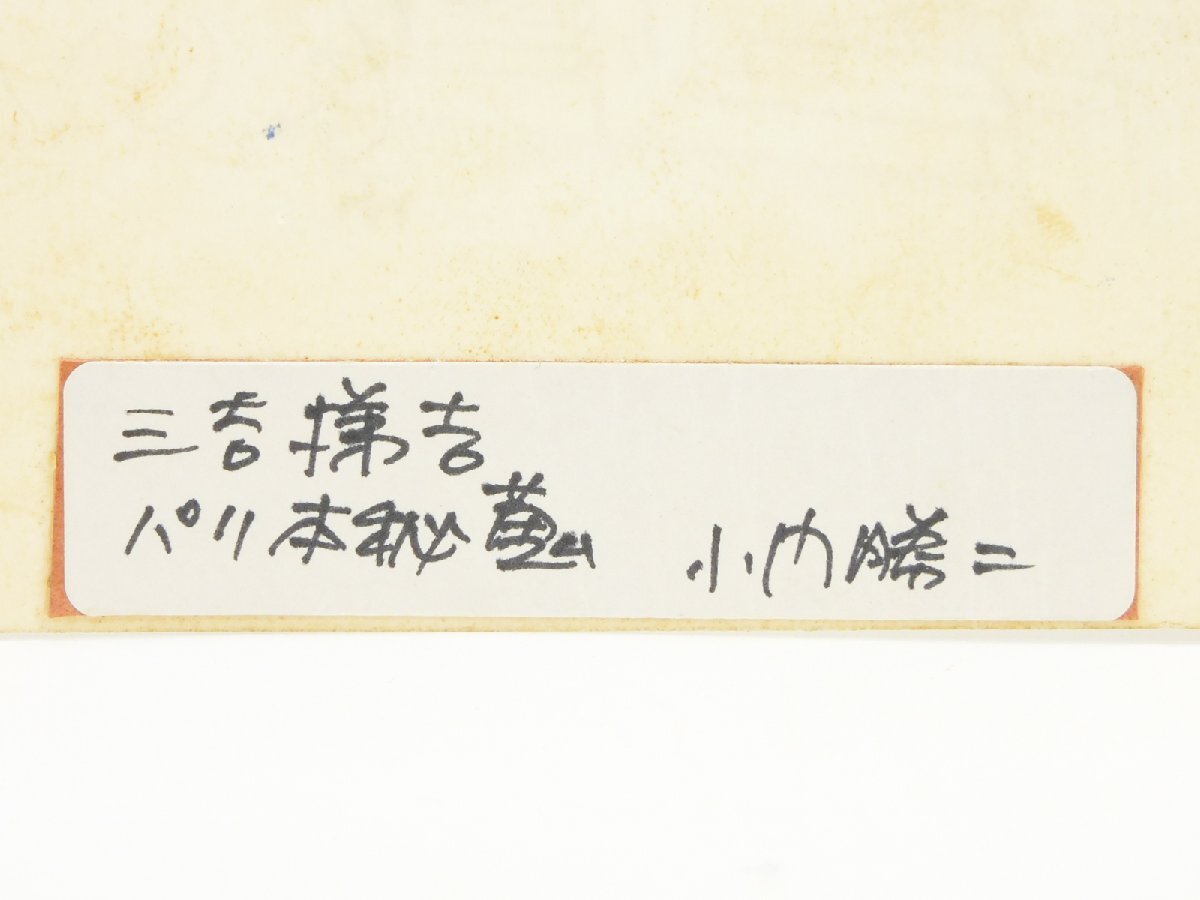 三吉様吉
パリ本秘 小内勝二